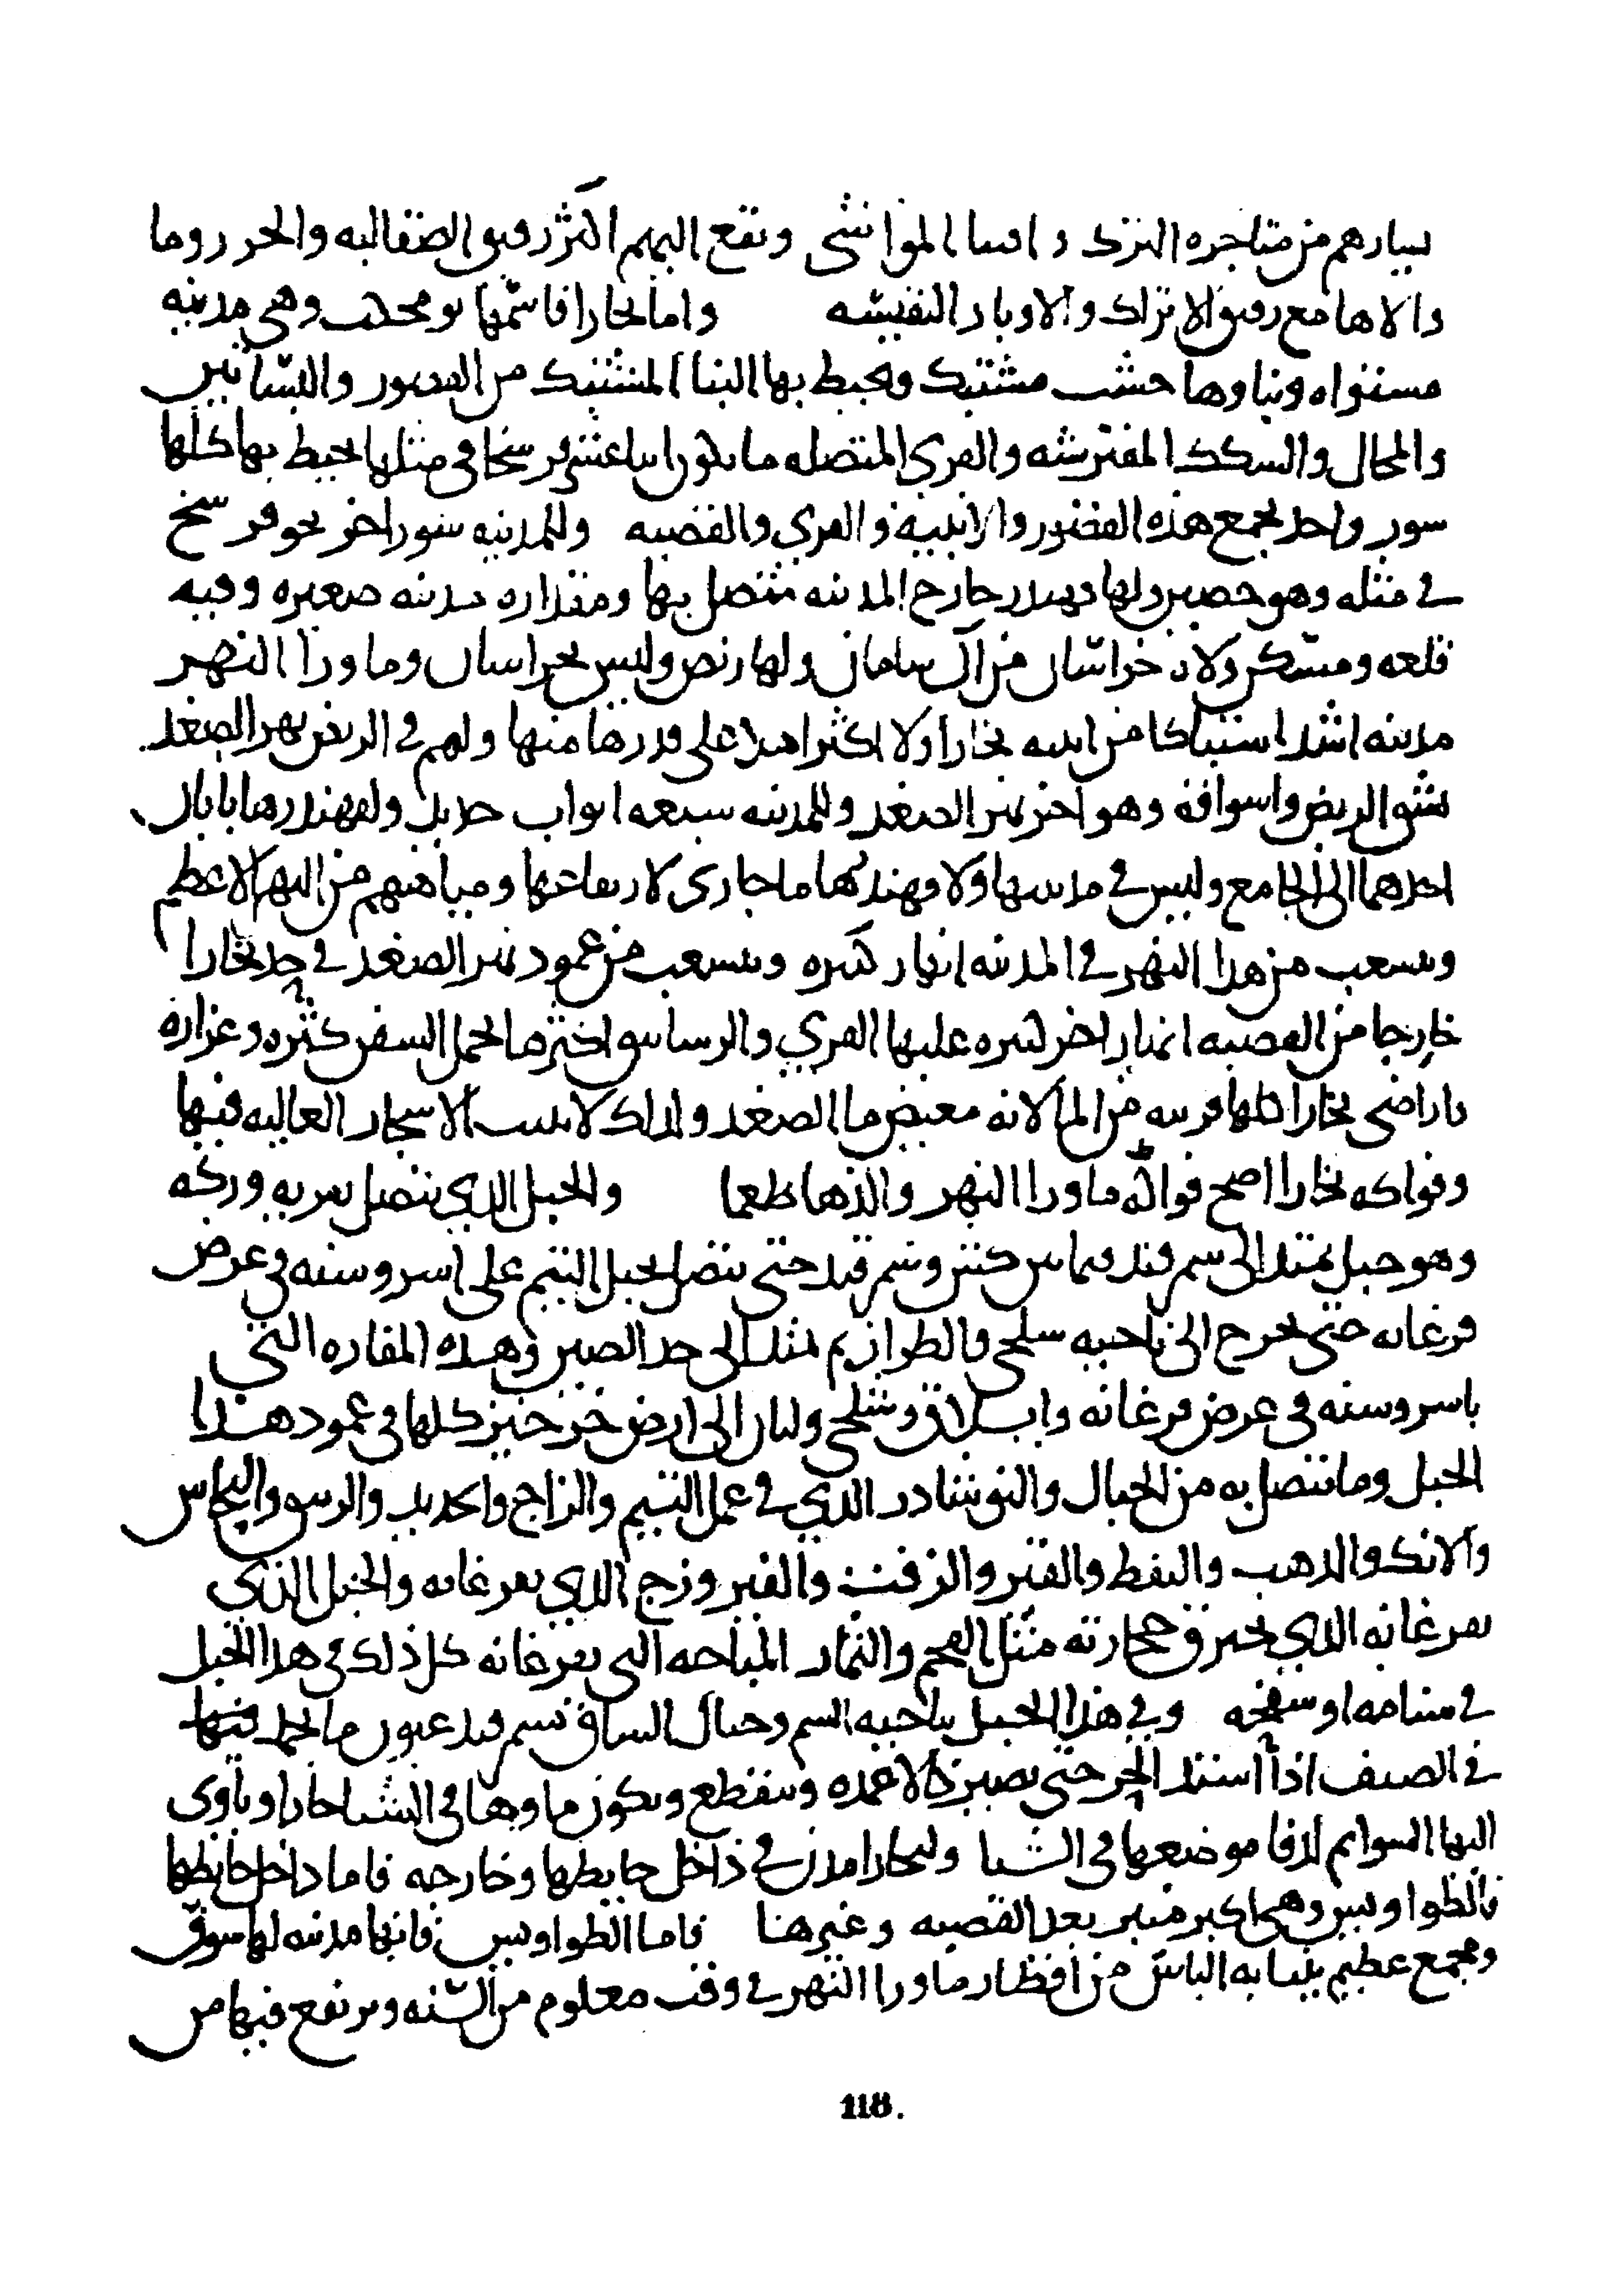 يسارهم من متاجره الترك واقتنا المواشى وتقع اليهم اكثر رقيق الصقالبه والخزر وما
والاها مع رقيق الاتراك والاوبار النفيسه واما بخارا فاسمها نومجكث وهى مدينه
مستواه وبناوها خشب مشتبك ويحيط بها البنا المشتبك من القصور والبساتين
والمحال والسكك المفترشه والقرى المتصله ما يكون اثنا عشر فرسخا فى مثلها يحيط بها كلها
سور واحد يجمع هذه القصور والابنيه والقرى والقصبه وللمدينه سور اخر نحو فرسخ
فى مثله وهو حصين ولها قهندز خارج المدينه متصل بها ومقداره مدينه صغيره وفيه
قلعه ومسكن ولاه خراسان من آل سامان ولها ربض وليس بخراسان وما ورا النهر
مدينه اشد اشتباكا من ابنيه بخارا ولا اكثر اهلا على قدرها منها ولهم فى الربض نهر الصغد
يشق الربض واسواقه وهو اخر نهر الصغد وللمدينه سبعه ابواب حديد ولقهندزها بابان
احدهما الى الجامع وليس فى مدينتها ولا قهندزها ما جارى لارتفاعها ومياههم من النهر الاعظم
ويتشعب من هذا النهر فى المدينه انهار كثيره ويتشعب من عمود نهر الصغد فى حد بخارا
خارجا من القصبه انهار اخر كثيره عليها القرى والرساتيق اكثرها يحمل السفن كثره وغزاره
واراضى بخارا كلها قريبه من الما لانه مغيض ما الصغد ولذلك لا ينبت الاشجار العاليه فيها
وفواكه بخارا اصح فواكه ما ورا النهر والذها طعما والجبل الذي يتصل بقريه وركه
وهو جبل يمتد الى سمرقند فيما بين كش وسمرقند حتى يتصل بجبل البتم على اسروسنه فى عرض
فرغانه حتى يخرج الى ناحيه شلجى والطراز ثم يمتد الى حد الصين وهذه المفازه التى
باسروسنه فى عرض فرغانه وايلاق وشلجى ولبان الى ارض خرخيز كلها فى عمود هذا
الجبل وما يتصل به من الجبال والنوشادر الذي فى عمل البتم والزاج والحديد والزيبق والنحاس
والانك والذهب والنفط والقير والزفت والفيروزج الذي بفرغانه والجبل الذي
بفرغانه الذي يحترق حجارته مثل الفحم والثمار المباحه التى بفرغانه كل ذلك فى هذا الجبل
فى سنامه او سفحه وفى هذا الجبل بناحيه البتم وجبال الساق بسمرقند عيون ما يجمد فيها
فى الصيف اذا اشتد الحر حتى يصير كالاعمده وينقطع ويكون ماوها فى الشتا حارا وياوى
اليها السوايم لدفا موضعها فى الشتا ولبخارا مدن فى داخل حايطها وخارجه فاما داخل حايطها
فالطواويس وهى اكبر منبر بعد القصبه وغيرها فاما الطواويس فانها مدينه لها سوق
ومجمع عظيم ينتابه الناس من اقطار ما ورا النهر فى وقت معلوم من السنه ويرتفع فيها من
118.